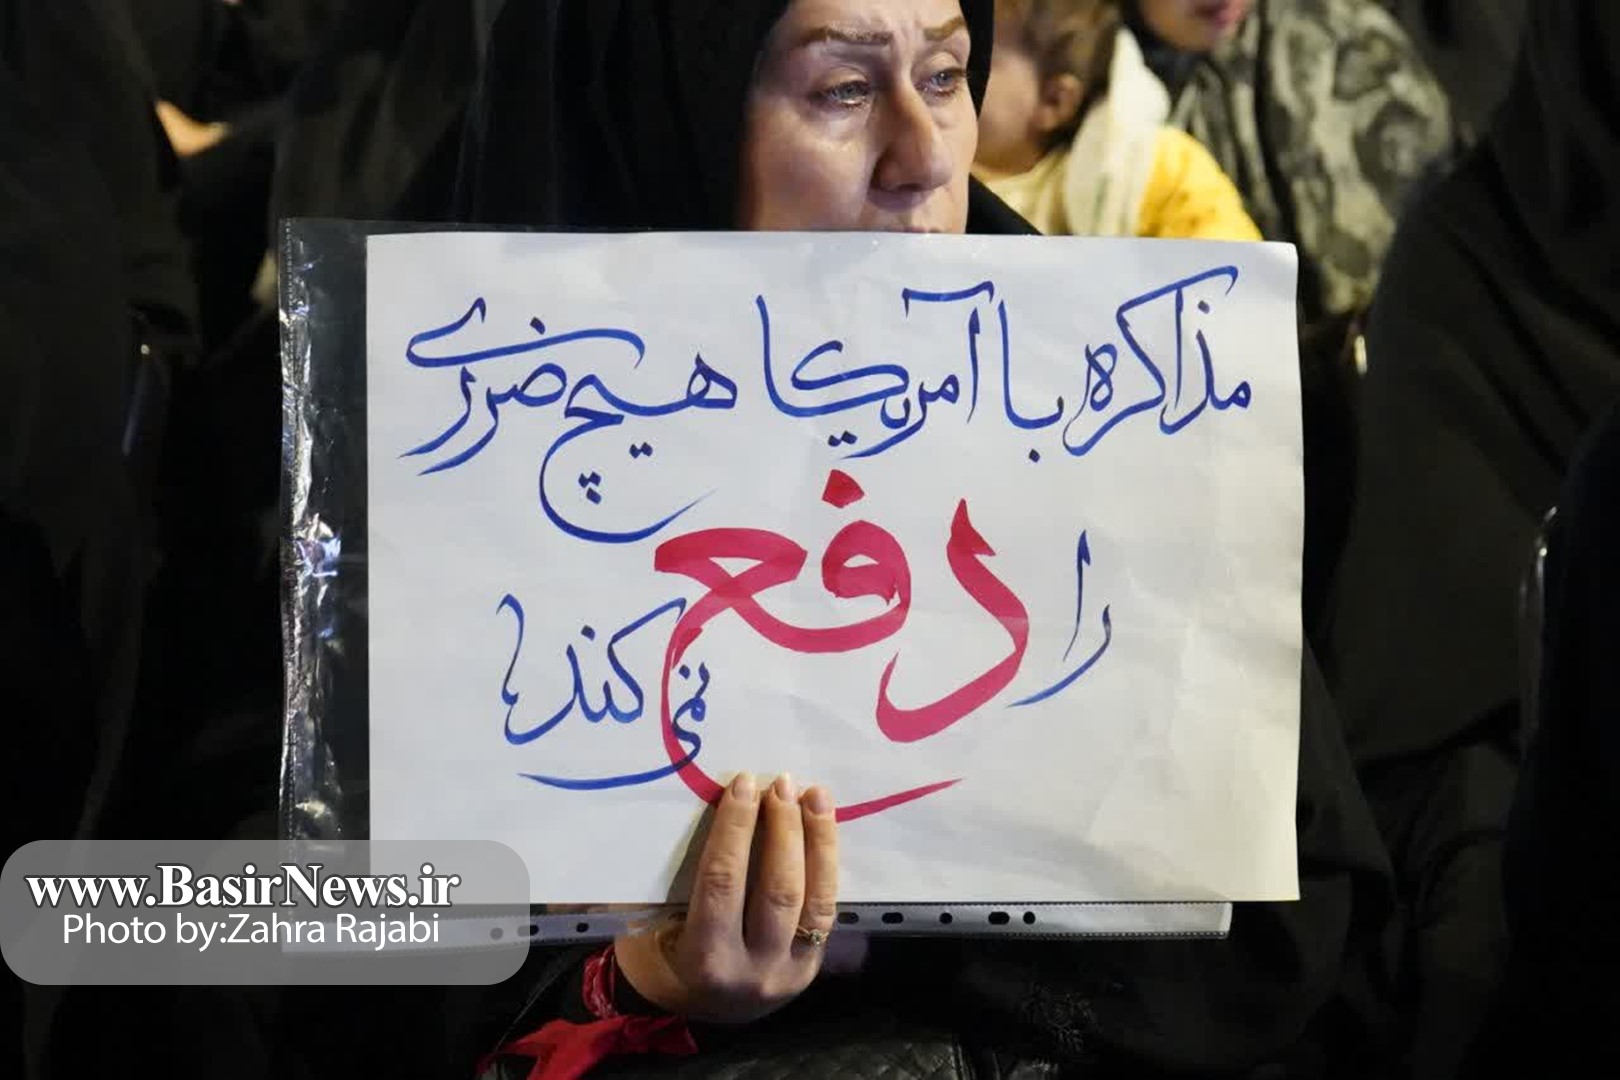 مذاکره با آمریکا هیچ ضرری
را دفع نمی کند!
www.BasirNews.ir
Photo by:Zahra Rajabi